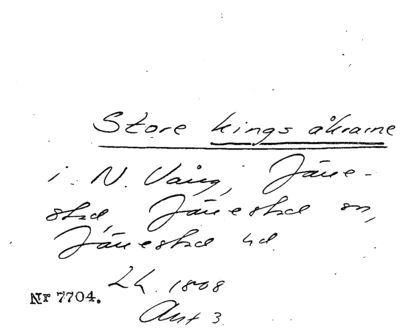 Store kings åkrarne
i N. Vång, Järre-
stad, Järrestad sn,
Järrestad hd
LH. 1808
Akt 3.
Nr 7704.